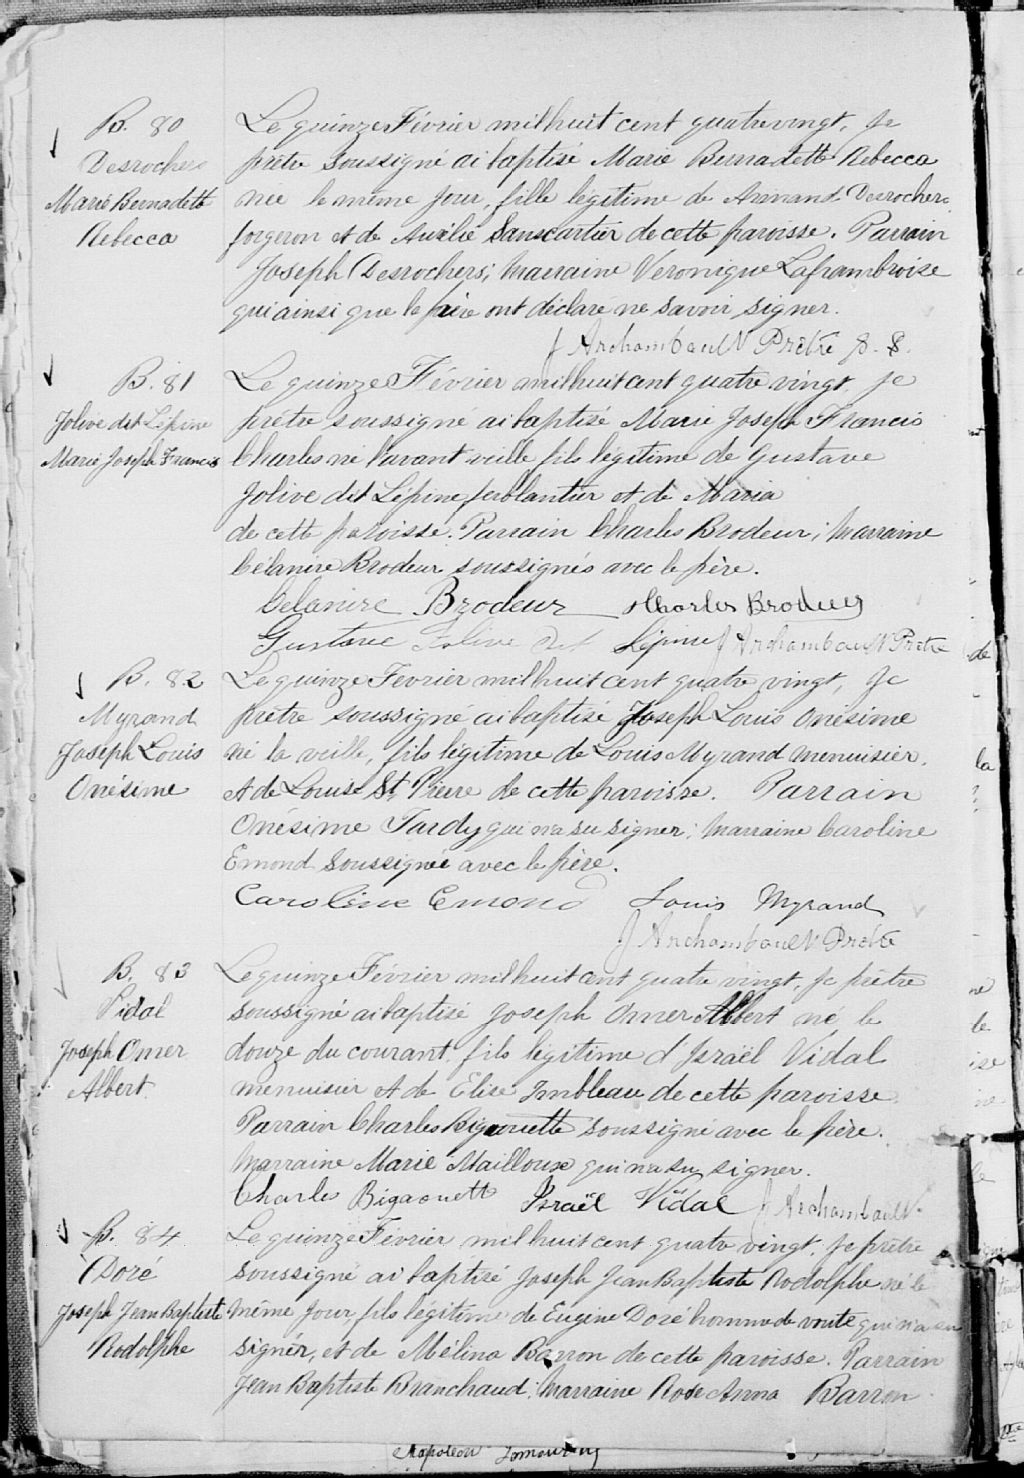 B. 80
Desrochers
Marie Bernadette
Rebecca
Le quinze Février mil huit cent quatre vingt, Je
prêtre soussigné ai baptisé Marie Bernadette Rebecca
née le même jour, fille légitime de Armand Desrochers
forgeron et de Aurélie Sanscartier de cette paroisse. Parrain
Joseph Desrochers; Marraine Veronique Laframboise
qui ainsi que le père ont déclaré ne savoir signer.
J Archambault Prêtre
B. 81
Jolive dit Lépine
Marie Joseph Francis
Le quinze Février mil huit cent quatre vingt, Je
prêtre soussigné ai baptisé Marie Joseph Francis
Charles né l'avant veille fils légitime de Gustave
Jolive dit Lépine, ferblantier et de Maria
de cette paroisse. Parrain Charles Brodeur; Marraine
Célanire Brodeur soussignés avec le père.
Célanire Brodeur Charles Brodeur
Gustave Jolive dit Lépine J Archambault Prêtre
B. 82
Myrand
Joseph Louis
Onésime
Le quinze Fevrier mil huit cent quatre vingt, Je
prêtre soussigné ai baptisé Joseph Louis Onésime
né la veille, fils légitime de Louis Myrand menuisier,
et de Louise St Pierre de cette paroisse. Parrain
Onesime Tardy qui n'a su signer; Marraine Caroline
Emond soussignée avec le père.
Caroline Emond Louis Myrand
J Archambault Prêtre
B. 83
Vidal
Joseph Omer
Albert
Le quinze Février mil huit cent quatre vingt, Je prêtre
soussigné ai baptisé Joseph Omer Albert né le
douze du courant, fils légitime d'Israël Vidal
menuisier et de Elise Imbleau de cette paroisse
Parrain Charles Bigaouette soussigné avec le père.
Marraine Marie Mailloux qui n'a su signer.
Charles Bigaouett Israël Vidal J Archambault
B. 84
Doré
Joseph Jean Baptiste
Rodolphe
Le quinze Février mil huit cent quatre vingt, Je prêtre
soussigné ai baptisé Joseph Jean Baptiste Rodolphe né le
même jour, fils légitime de Eugène Doré homme de voute qui n'a su
signer, et de Mélina Barron de cette paroisse. Parrain
Jean Baptiste Branchaud; Marraine Rose Anna Barron
Napoléon